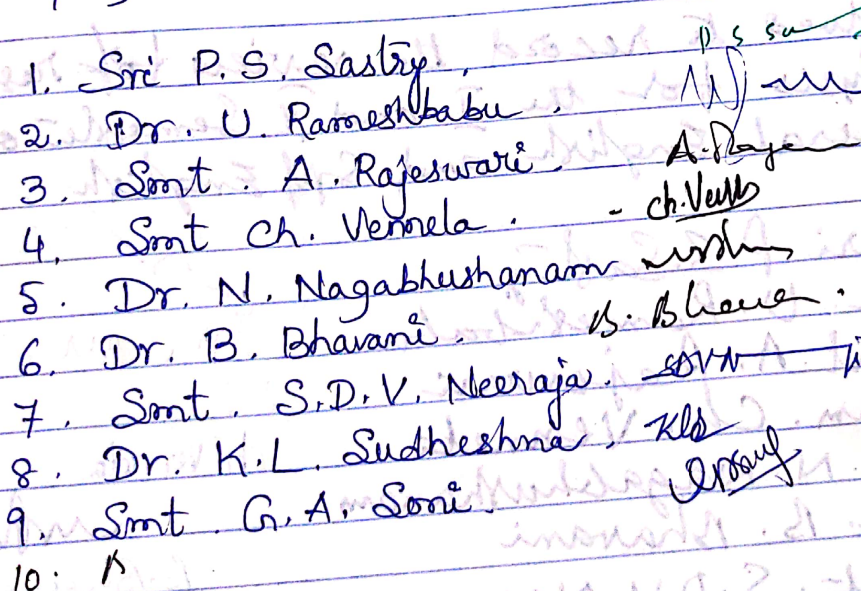 1. Sri P. S. Sastry.
2. Dr. U. Rameshbabu.
3. Smt. A. Rajeswari.
4. Smt Ch. Vennela.
5. Dr. N. Nagabhushanam
6. Dr. B. Bhavani. B. Bhavan.
7. Smt. S.D.V. Neeraja. SDVN
8. Dr. K.L. Sudheshna. KLS
9. Smt. G. A. Soni.
10.